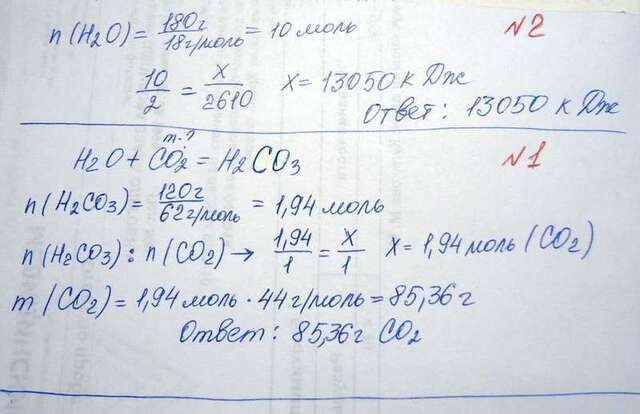 n(H2O) = 180г / 18г/моль = 10 моль №2
10/2 = x/2610 x = 13050 к Дж
Ответ: 13050 к Дж
m-?
H2O + CO2 = H2CO3 №1
n(H2CO3) = 120г / 62г/моль = 1,94 моль
n(H2CO3) : n(CO2) → 1,94/1 = x/1 x = 1,94 моль (CO2)
m(CO2) = 1,94 моль · 44 г/моль = 85,36 г
Ответ: 85,36 г CO2